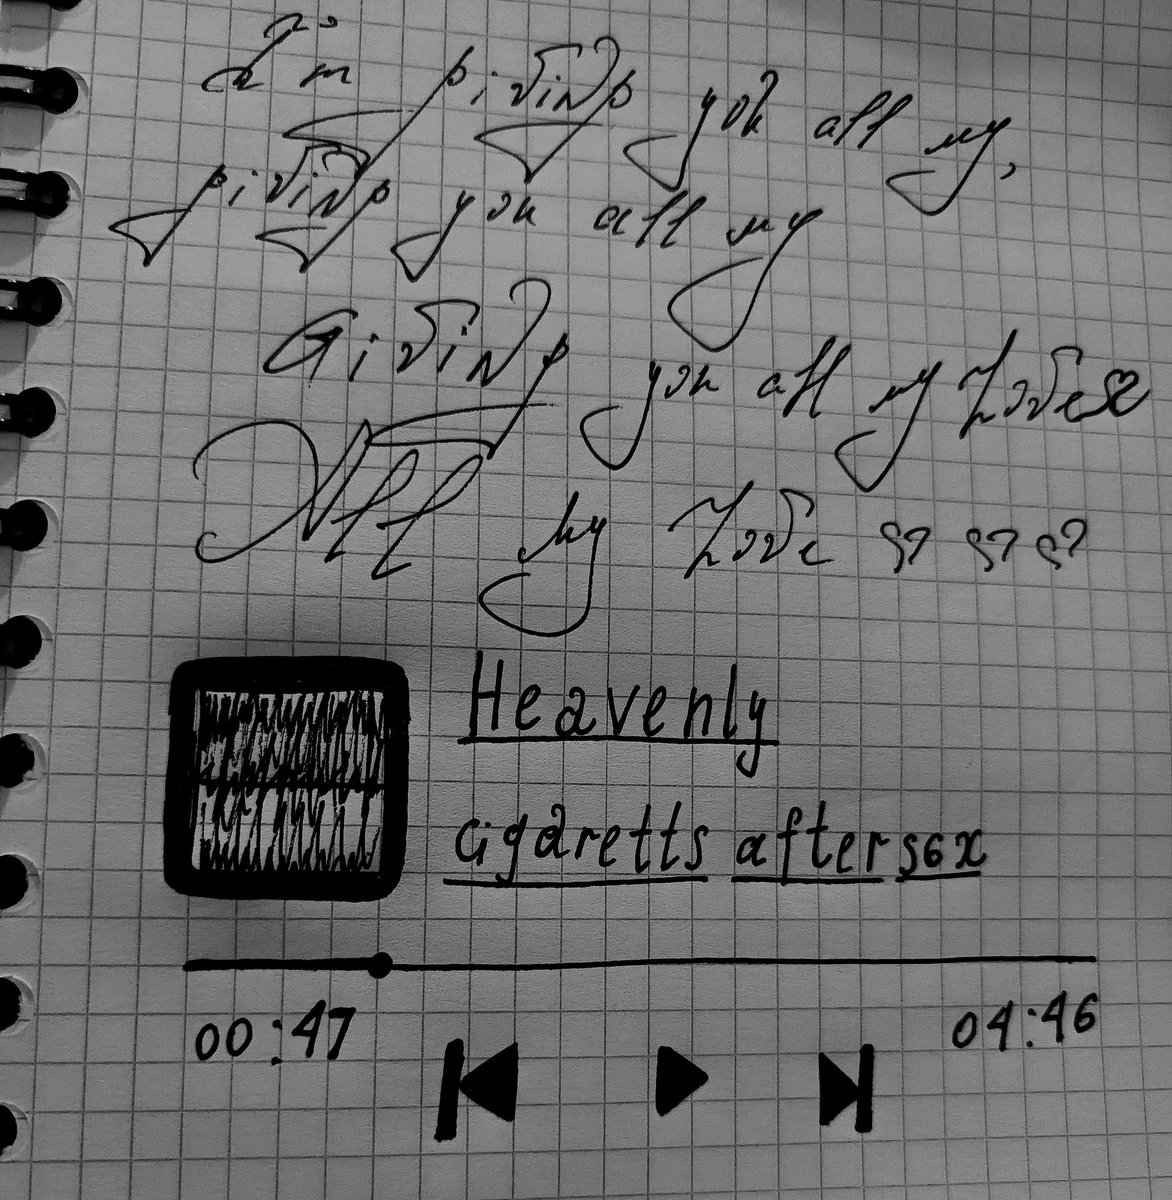 I'm giving you all my,
giving you all my
Giving you all my Love
All my Love
Heavenly
Cigaretts after sex
00:47
04:46